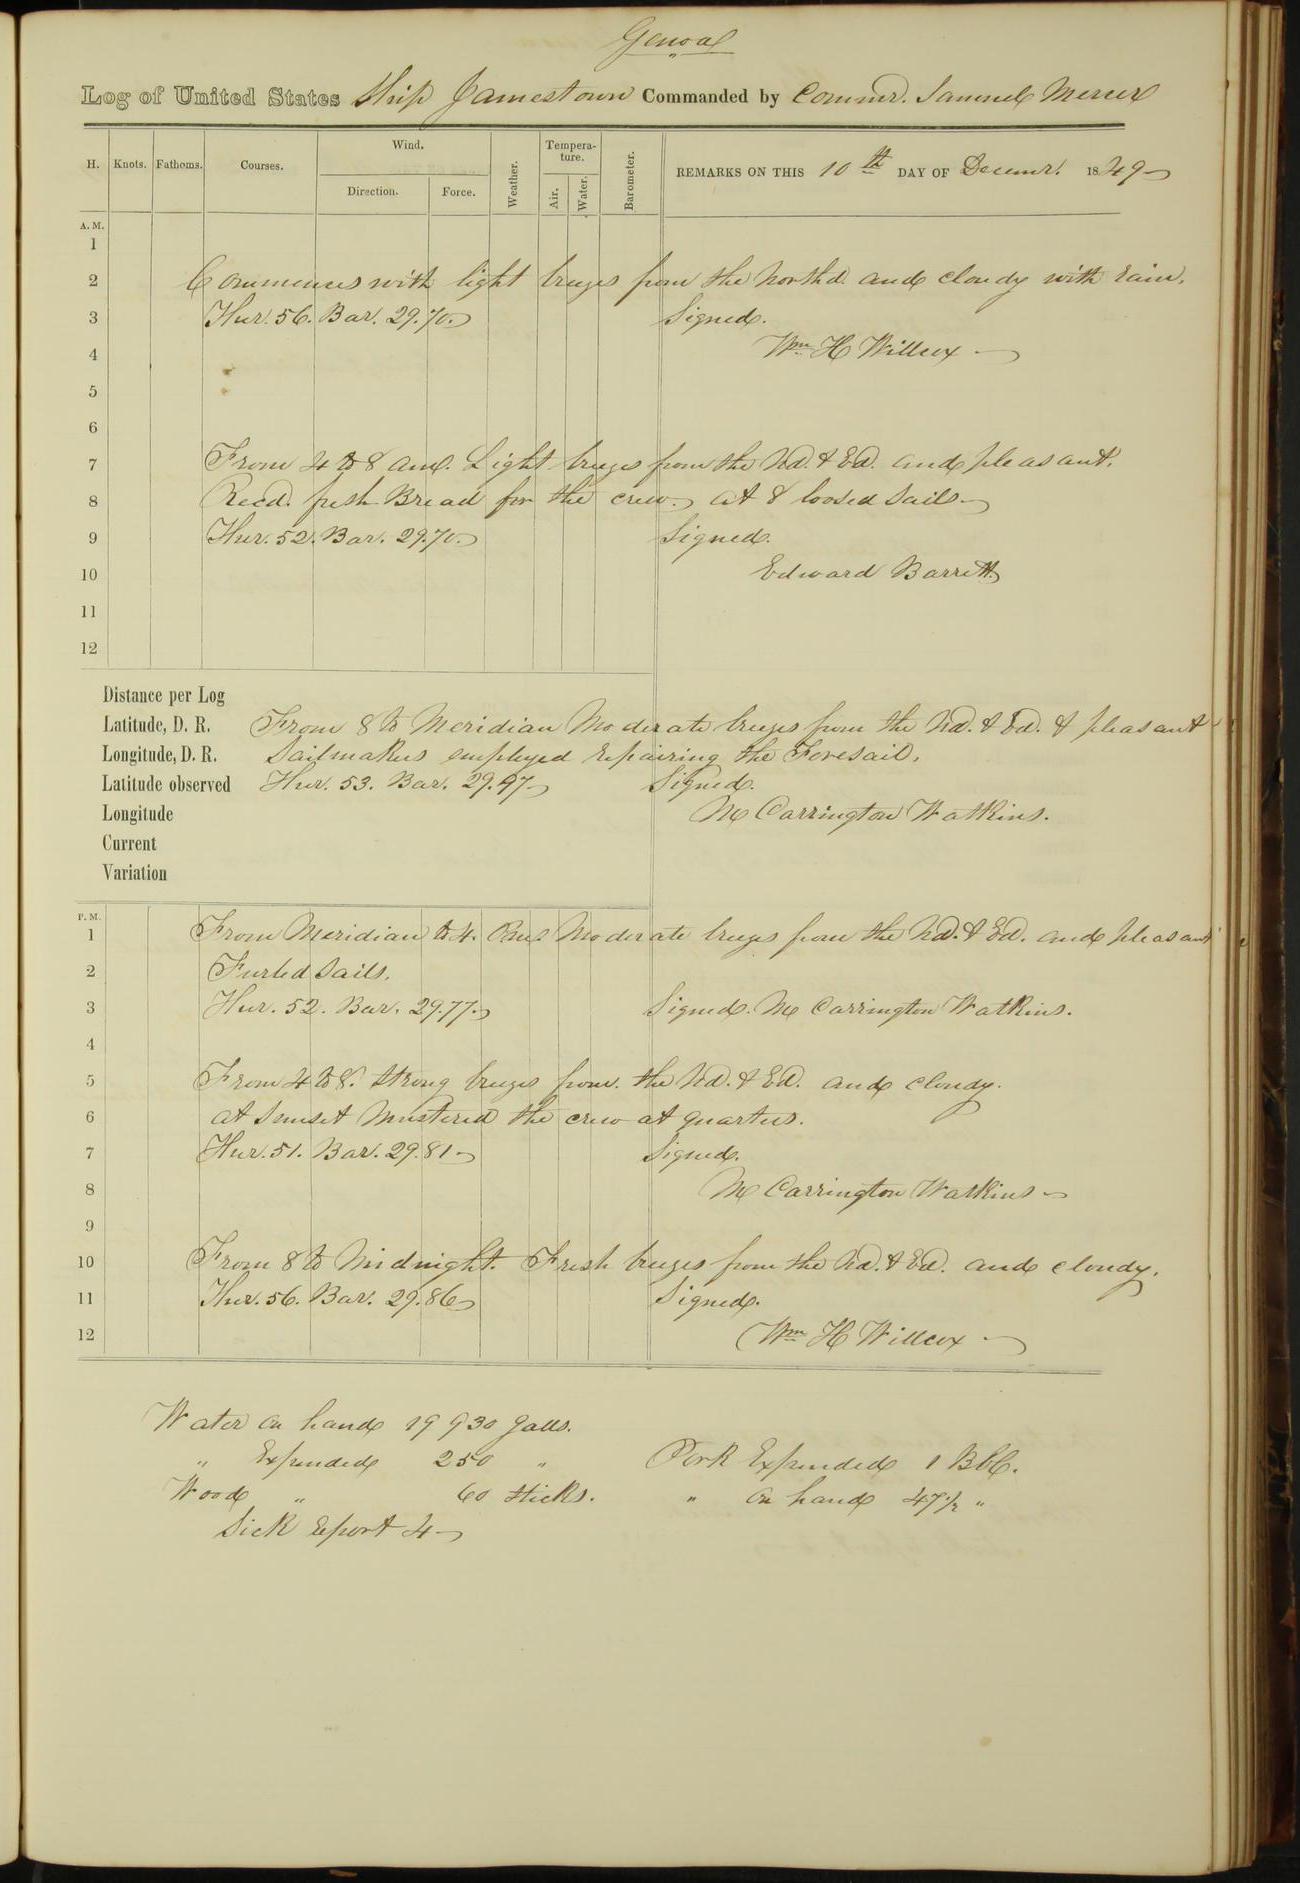 Genoa
Log of United States Ship Jamestown Commanded by Commr. Samuel Mercer
H. Knots. Fathoms. Courses. Wind. Direction. Force. Weather. Tempera-ture. Air. Water. Barometer. REMARKS ON THIS 10th DAY OF Decemr. 1849
A. M.
1
2 Commences with light breezes from the North'd. and cloudy with rain.
3 Ther. 56. Bar. 29.70. Signed.
4 Wm H Willcox
5
6
7 From 4 to 8 am. Light breezes from the Nd. & Ed. and pleasant.
8 Recd. fresh Bread for the crew. at 8 loosed sails.
9 Ther. 52. Bar. 29.70. Signed.
10 Edward Barrett
11
12
Distance per Log
Latitude, D. R. From 8 to Meridian Moderate breezes from the Nd. & Ed. & pleasant
Longitude, D. R. Sailmakers employed repairing the Foresail.
Latitude observed Ther. 53. Bar. 29.97 Signed.
Longitude M Carrington Watkins.
Current
Variation
P. M.
1 From Meridian to 4. Pm. Moderate breezes from the Nd. & Ed. and pleasant
2 Furled sails.
3 Ther. 52. Bar. 29.77. Signed. M Carrington Watkins.
4
5 From 4 to 8. strong breezes from the Nd. & Ed. and cloudy.
6 at Sunset Mustered the crew at quarters.
7 Ther. 51. Bar. 29.81 Signed.
8 M Carrington Watkins
9
10 From 8 to Midnight. Fresh breezes from the Nd. & Ed. and cloudy.
11 Ther. 56. Bar. 29.86 Signed.
12 Wm H Willcox
Water on hand 19 930 Galls.
" Expended 250 " Pork Expended 1 Bbl.
Wood " 60 sticks. " on hand 47 1/2 "
Sick report 4